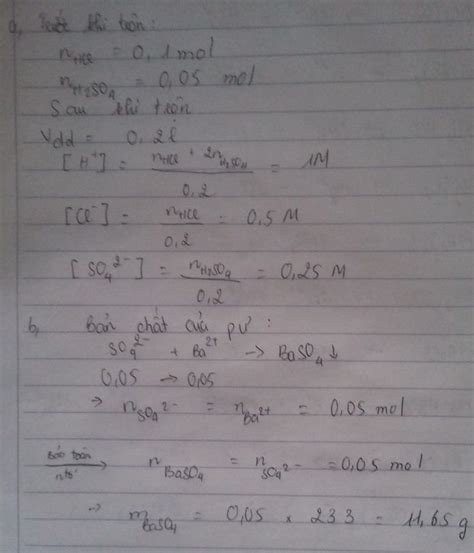 a, Trước khi trộn:
nHCl = 0,1mol
nH2SO4 = 0,05 mol
Sau khi trộn
Vdd = 0,2l
[H⁺] = (nHCl + 2nH2SO4) / 0,2 = 1M
[Cl⁻] = nHCl / 0,2 = 0,5 M
[SO₄²⁻] = nH2SO4 / 0,2 = 0,25 M
b, Bản chất của pư:
SO₄²⁻ + Ba²⁺ → BaSO₄↓
0,05 → 0,05
⇒ nSO₄²⁻ = nBa²⁺ = 0,05 mol
Bảo toàn
ntố → nBaSO₄ = nSO₄²⁻ = 0,05 mol
⇒ mBaSO₄ = 0,05 × 233 = 11,65 g